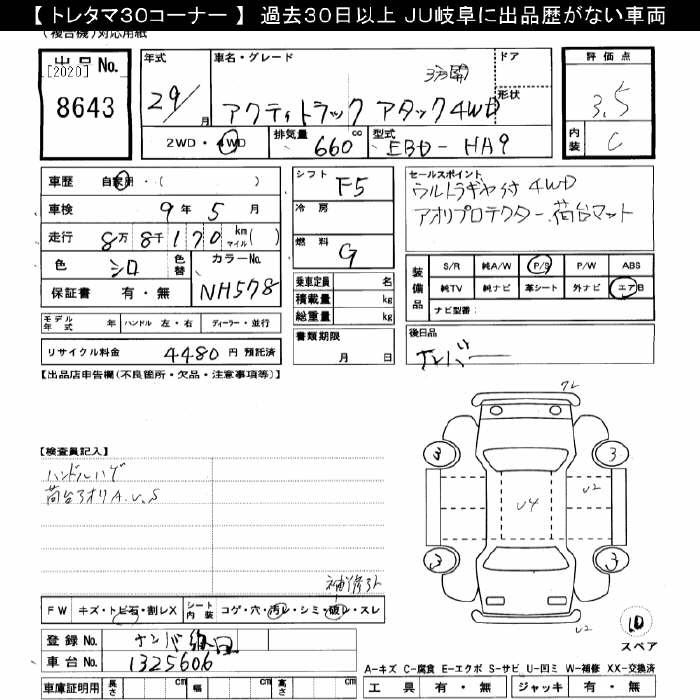 【 トレタマ30コーナー 】 過去30日以上 JU岐阜に出品歴がない車両
(複合機)対応用紙
出品No.
[2020]
8643
年式
29/
月
車名・グレード
3方開
アクティトラック アタック4WD
ドア
形状
評価点
3.5
内装
C
2WD・4WD
排気量
660
cc
型式
EBD-HA9
車歴 自家用・( )
車検 9年 5月
走行 8万 8千 170 km マイル( )
色 シロ
色替
カラーNo.
NH578
保証書 有・無
シフト
F5
冷房
燃料
G
乗車定員 名
積載量 kg
総重量 kg
セールスポイント
ウルトラギヤ付 4WD
アオリプロテクター 荷台マット
装備品
S/R 純A/W P/S P/W ABS
純TV 純ナビ 革シート 外ナビ エアB
ナビ型番:
モデル年式 年 ハンドル 左・右 ディーラー・並行
リサイクル料金 4480 円 預託済
書類期限
月 日
後日品
ナンバー
【出品店申告欄(不良箇所・欠品・注意事項等)】
【検査員記入】
ハンドルハゲ
荷台アオリA.U.S
3
3
U4
U2
3
3
U2
10
スペア
FW キズ・トビ石・割レX
シート内装 コゲ・穴・汚レ・シミ・破レ・スレ
登録No.
車台No. 1325606
車庫証明用 長さ cm 幅 cm 高さ cm
A-キズ C-腐食 E-エクボ S-サビ U-凹ミ W-補修 XX-交換済
工具 有・無 ジャッキ 有・無